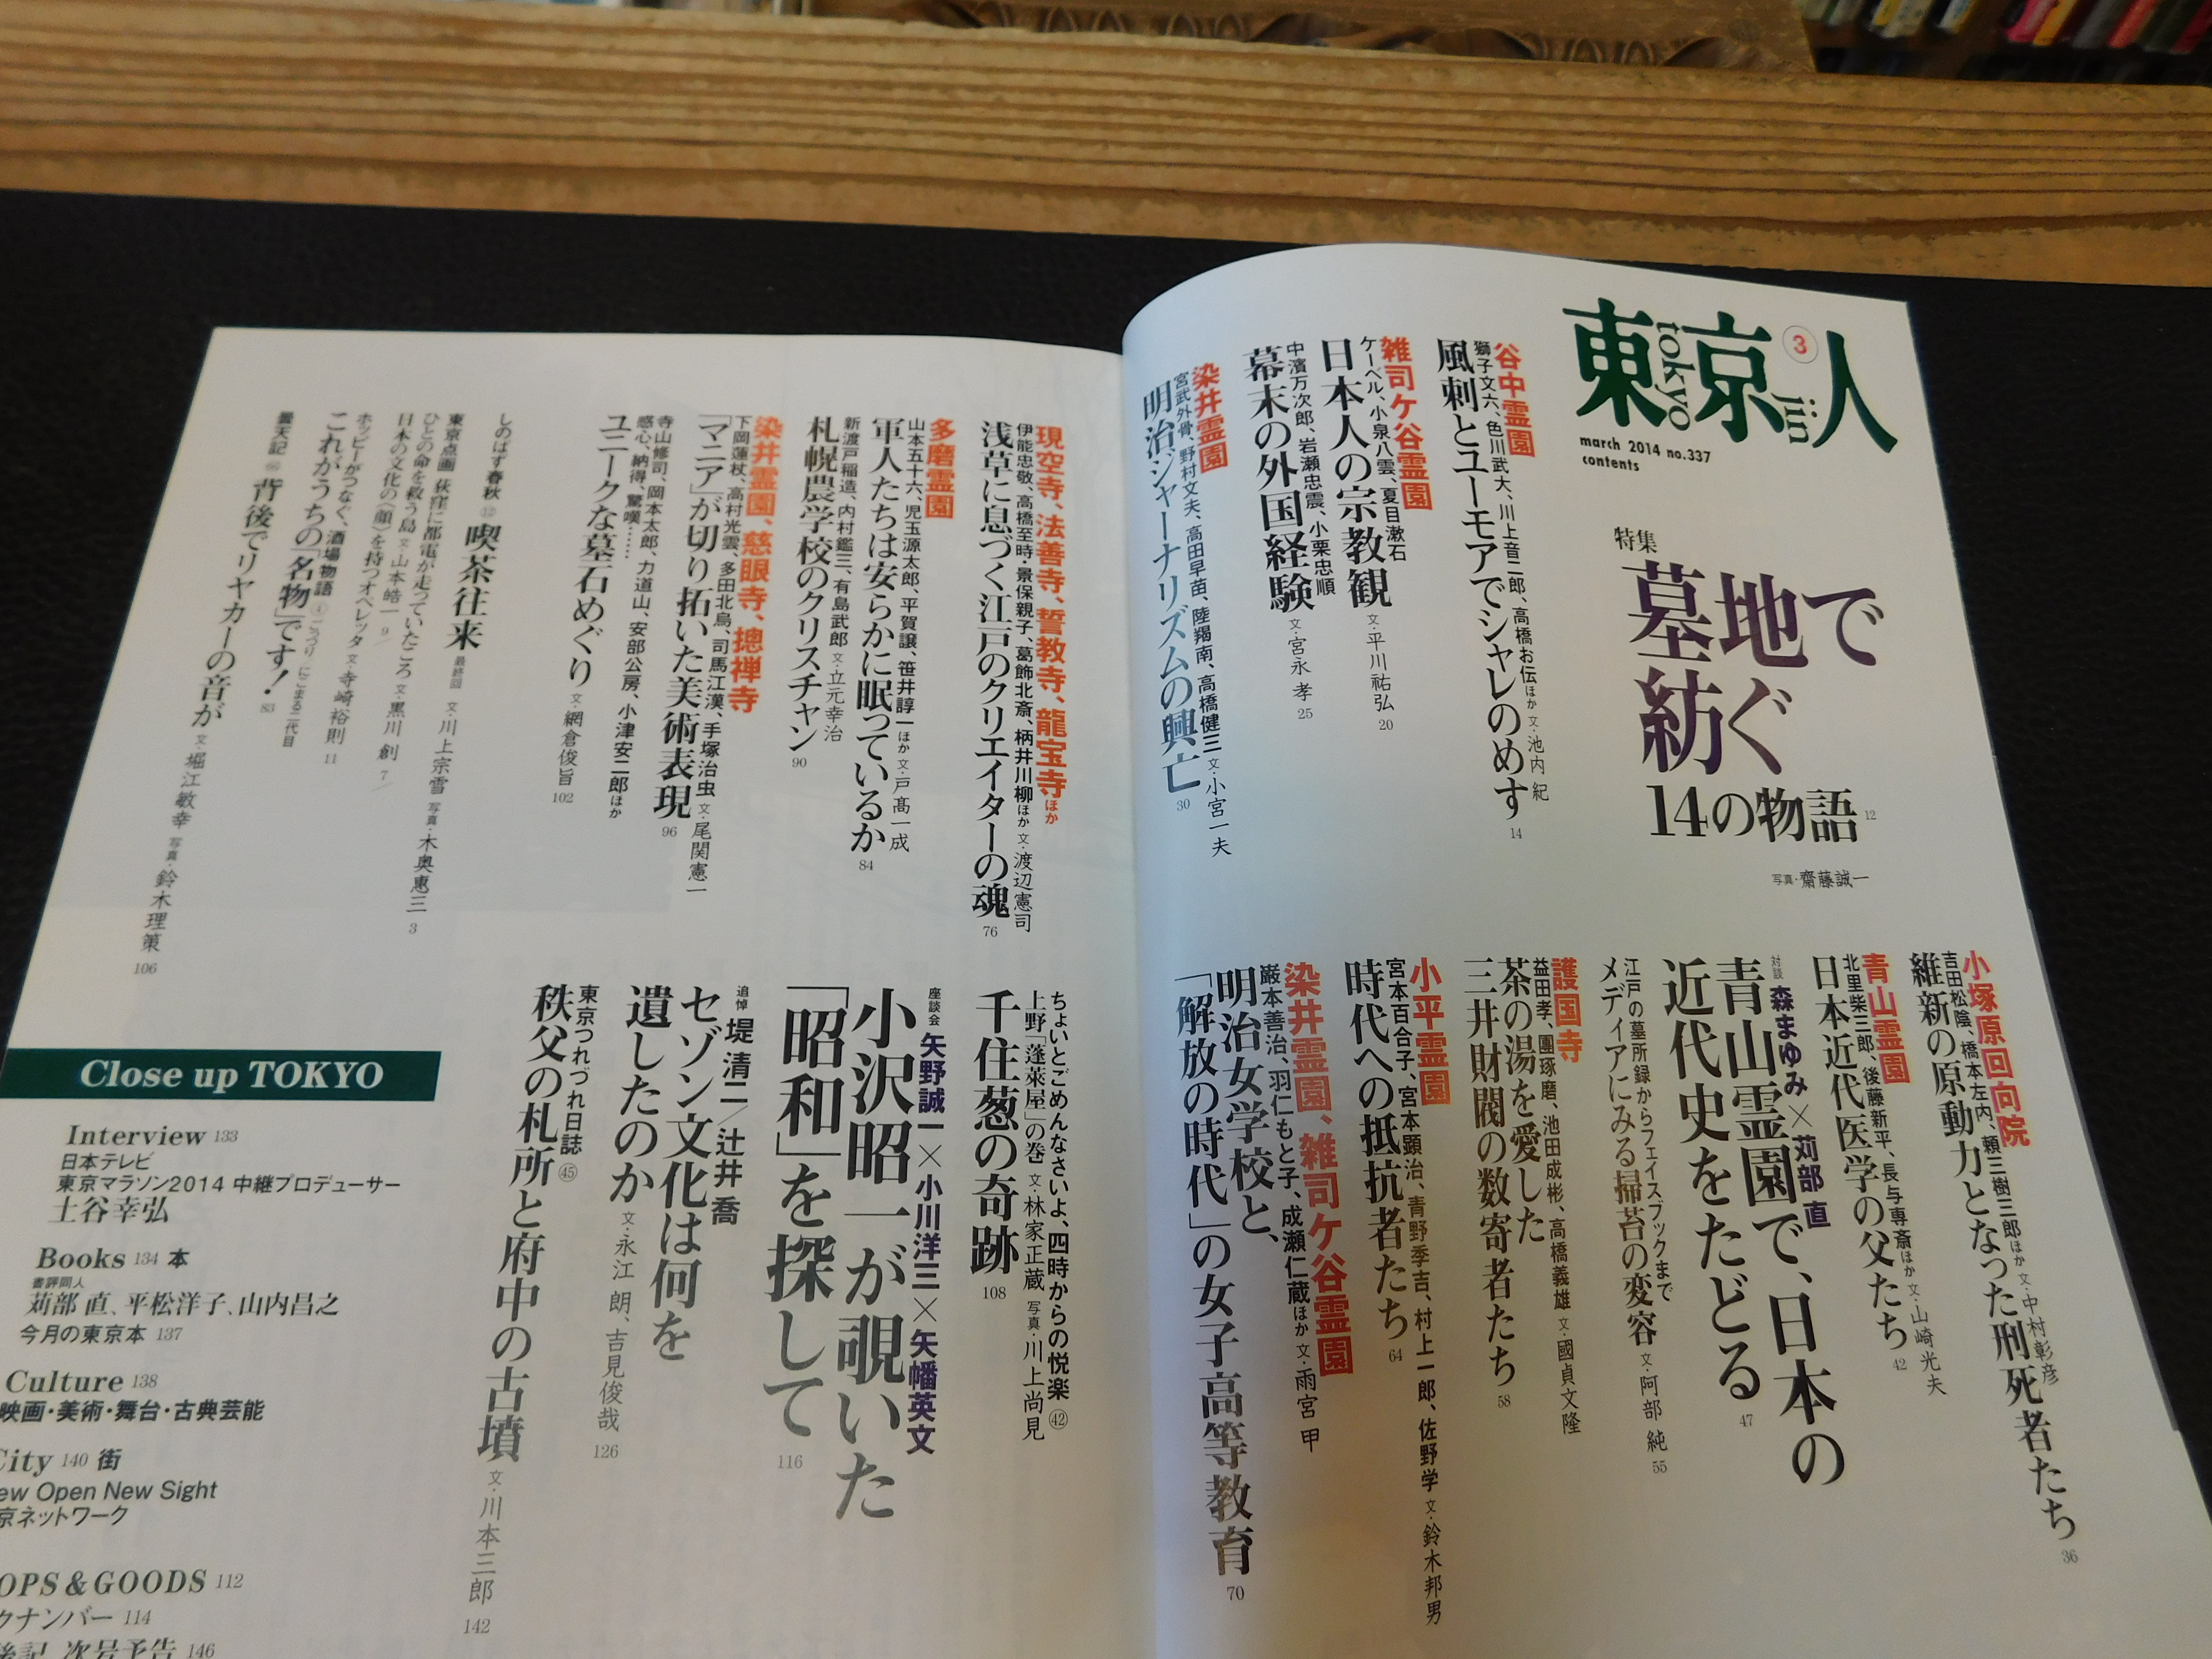 東京人
tokyo
jin
3
march 2014 no.337
contents
特集
墓地で
紡ぐ
14の物語 12
写真・齋藤誠一
谷中霊園
獅子文六、色川武大、川上音二郎、高橋お伝ほか 文・池内 紀
風刺とユーモアでシャレのめす 14
雑司ケ谷霊園
ケーベル、小泉八雲、夏目漱石
日本人の宗教観 文・平川祐弘 20
中濱万次郎、岩瀬忠震、小栗忠順
幕末の外国経験 文・宮永 孝 25
染井霊園
宮武外骨、野村文夫、高田早苗、陸羯南、高橋健三 文・小宮一夫
明治ジャーナリズムの興亡 30
小塚原回向院
吉田松陰、橋本左内、頼三樹三郎ほか 文・中村彰彦
維新の原動力となった刑死者たち 36
青山霊園
北里柴三郎、後藤新平、長与専斎ほか 文・山崎光夫
日本近代医学の父たち 42
対談 森まゆみ×苅部 直
青山霊園で、日本の
近代史をたどる 47
江戸の墓所録からフェイスブックまで
メディアにみる掃苔の変容 文・阿部 純 55
護国寺
益田孝、團琢磨、池田成彬、高橋義雄 文・國貞文隆
茶の湯を愛した
三井財閥の数寄者たち 58
小平霊園
宮本百合子、宮本顕治、青野季吉、村上一郎、佐野学 文・鈴木邦男
時代への抵抗者たち 64
染井霊園、雑司ケ谷霊園
巌本善治、羽仁もと子、成瀬仁蔵ほか 文・雨宮 甲
明治女学校と、
「解放の時代」の女子高等教育 70
現空寺、法善寺、誓教寺、龍宝寺ほか
伊能忠敬、高橋至時・景保親子、葛飾北斎、柄井川柳ほか 文・渡辺憲司
浅草に息づく江戸のクリエイターの魂 76
多磨霊園
山本五十六、児玉源太郎、平賀譲、笹井醇一ほか 文・戸髙一成
軍人たちは安らかに眠っているか 84
新渡戸稲造、内村鑑三、有島武郎 文・立元幸治
札幌農学校のクリスチャン 90
染井霊園、慈眼寺、摠禅寺
下岡蓮杖、高村光雲、多田北烏、司馬江漢、手塚治虫 文・尾関憲一
「マニア」が切り拓いた美術表現 96
寺山修司、岡本太郎、力道山、安部公房、小津安二郎ほか
感心、納得、驚嘆……
ユニークな墓石めぐり 文・網倉俊旨 102
しのばず春秋 ⑫ 喫茶往来 最終回 文・川上宗雪 写真・木奥惠三 3
東京点画 荻窪に都電が走っていたころ 文・黒川 創 7/
ひとの命を救う島 文・山本皓一 9/
日本の文化の〈顔〉を持つオペレッタ 文・寺崎裕則 11
ホッピーがつなぐ、酒場物語 ④ にこまる二代目
これがうちの「名物」です! 83
曇天記 背後でリヤカーの音が 文・堀江敏幸 写真・鈴木理策 106
ちょいとごめんなさいよ、四時からの悦楽 ㊷
上野「蓬萊屋」の巻 文・林家正蔵 写真・川上尚見
千住葱の奇跡 108
座談会 矢野誠一×小川洋三×矢幡英文
小沢昭一が覗いた
「昭和」を探して 116
追悼 堤 清二/辻井 喬
セゾン文化は何を
遺したのか 文・永江 朗、吉見俊哉 126
東京つれづれ日誌 ㊺
秩父の札所と府中の古墳 文・川本三郎 142
Close up TOKYO
Interview 133
日本テレビ
東京マラソン2014 中継プロデューサー
土谷幸弘
Books 134 本
書評同人
苅部 直、平松洋子、山内昌之
今月の東京本 137
Culture 138
映画・美術・舞台・古典芸能
City 140 街
ew Open New Sight
京ネットワーク
OPS & GOODS 112
クナンバー 114
後記 次号予告 146